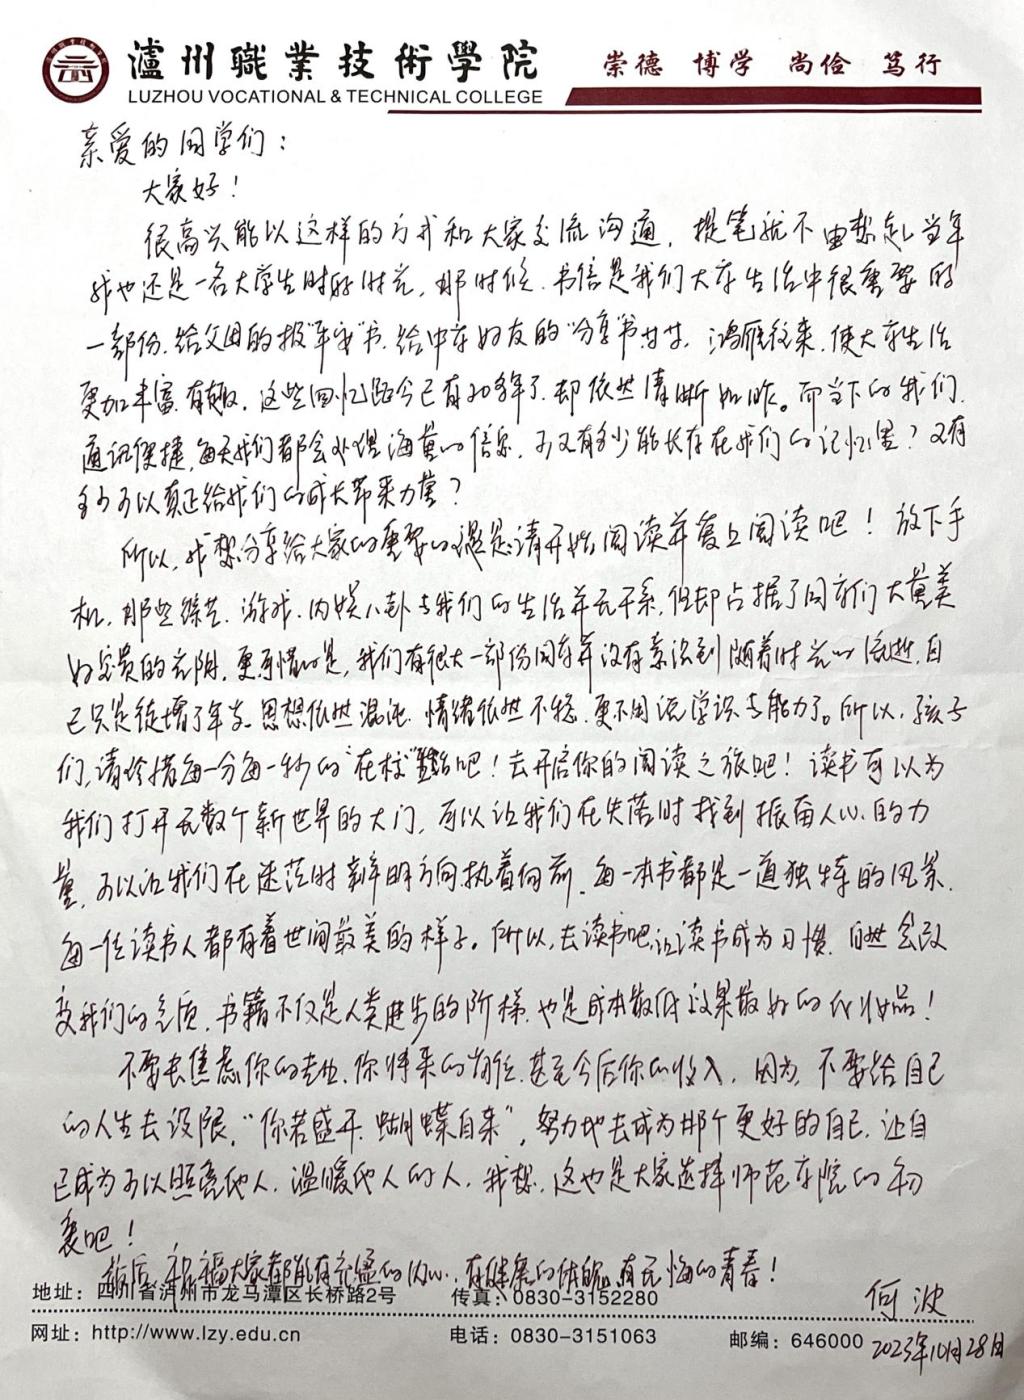 瀘州職業技術學院
崇德 博学 尚俭 笃行
LUZHOU VOCATIONAL & TECHNICAL COLLEGE
亲爱的同学们：
大家好！
很高兴能以这样的方式和大家交流沟通，提笔就不由想起当年
我也还是一名大学生时的时光，那时候，书信是我们大学生活中很重要的
一部份，给父母的报"平安"书，给中学好友的"分享"书，鸿雁往来，使大学生活
更加丰富、有趣，这些回忆距今已有20多年了，却依然清晰如昨。而当下的我们，
通讯便捷，每天我们都会处理海量的信息，可又有多少能长存在我们的记忆里？又有
多少可以真正给我们的成长带来力量？
所以，我想分享给大家的重要的话题是：请开始阅读并爱上阅读吧！放下手
机，那些综艺、游戏、内娱八卦与我们的生活并无干系，但却占据了同学们大量美
好宝贵的光阴，更可惜的是，我们有很大一部份同学并没有意识到随着时光的流逝，自
己只是徒增了年岁，思想依然混沌，情绪依然不稳，更不用说学识与能力了。所以，孩子
们，请珍惜每一分每一秒的"在校"吧！去开启你的阅读之旅吧！读书可以为
我们打开无数个新世界的大门，可以让我们在失落时找到振奋人心的力
量，可以让我们在迷茫时辨明方向执着向前，每一本书都是一道独特的风景，
每一位读书人都有着世间最美的样子。所以，去读书吧，让读书成为习惯，自然会改
变我们的气质，书籍不仅是人类进步的阶梯，也是成本最低效果最好的化妆品！
不要去焦虑你的专业、你将来的岗位、甚至今后你的收入，因为，不要给自己
的人生去设限，"你若盛开，蝴蝶自来"，努力地去成为那个更好的自己，让自
己成为可以照亮他人，温暖他人的人，我想，这也是大家选择师范学院的初
衷吧！
最后，祝福大家都能有充盈的内心，有健康的体魄，有无悔的青春！
何波
2023年10月28日
地址：四川省泸州市龙马潭区长桥路2号 传真：0830-3152280
网址：http://www.lzy.edu.cn 电话：0830-3151063 邮编：646000